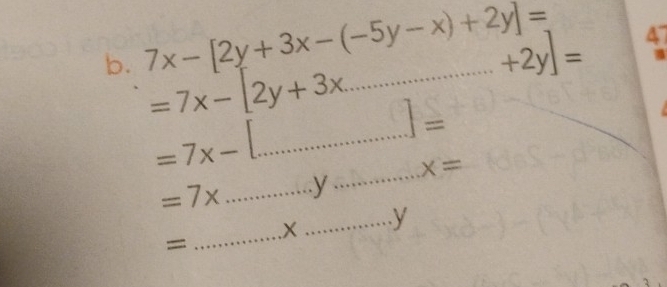 b. 7x – [2y + 3x – (–5y – x) + 2y] =
= 7x – [2y + 3x.................... +2y] =
= 7x – [....................] =
= 7x ..............y ..............x =
= ..............x ..............y
47